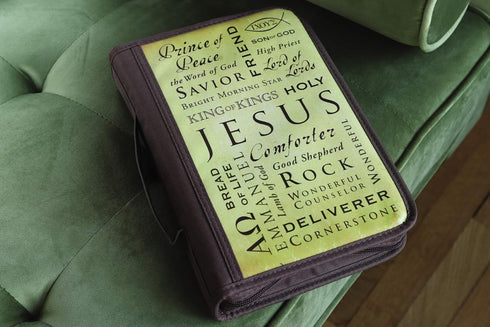 Prince of
Peace
the Word of God
SAVIOR
FRIEND
SON OF GOD
High Priest
Lord of
Lords
BRIGHT MORNING STAR
KING OF KINGS
HOLY
JESUS
Comforter
Good Shepherd
ROCK
WONDERFUL
WONDERFUL
COUNSELOR
BREAD
OF LIFE
EMMANUEL
Lamb of God
ΑΩ
DELIVERER
CORNERSTONE